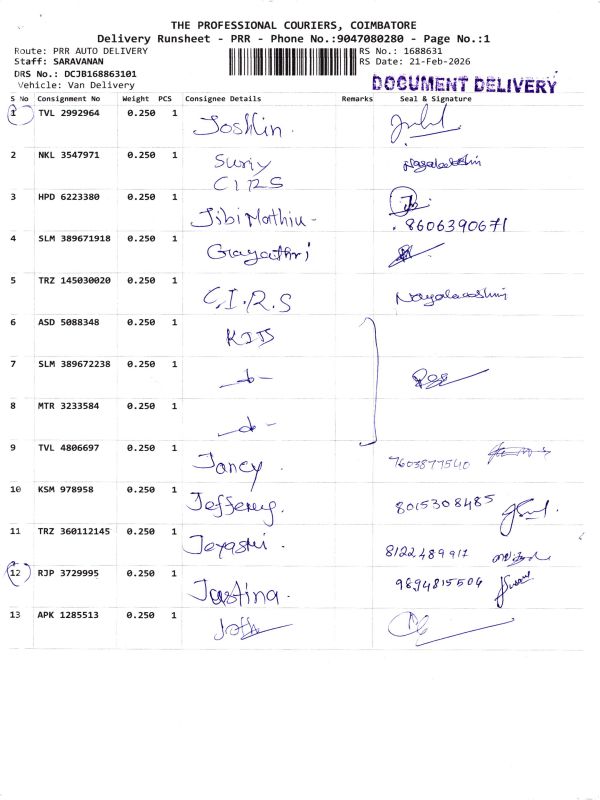 THE PROFESSIONAL COURIERS, COIMBATORE
Delivery Runsheet - PRR - Phone No.:9047080280 - Page No.:1
Route: PRR AUTO DELIVERY RS No.: 1688631
Staff: SARAVANAN RS Date: 21-Feb-2026
DRS No.: DCJB168863101
Vehicle: Van Delivery DOCUMENT DELIVERY
S No Consignment No Weight PCS Consignee Details Remarks Seal & Signature
1 TVL 2992964 0.250 1 Joshlin.
2 NKL 3547971 0.250 1 Suriy Nagalakshmi
CIRS
3 HPD 6223380 0.250 1 Jibi Mathiu-
8606390671
4 SLM 389671918 0.250 1 Grayathri
5 TRZ 145030020 0.250 1 C.I.R.S Nagalakshmi
6 ASD 5088348 0.250 1
7 SLM 389672238 0.250 1
8 MTR 3233584 0.250 1
9 TVL 4806697 0.250 1 Jancy. 7603877540
10 KSM 978958 0.250 1 Jefferey. 8015308485
11 TRZ 360112145 0.250 1 Jeyashi. 8122489917
12 RJP 3729995 0.250 1 Jastina. 9894815504
13 APK 1285513 0.250 1